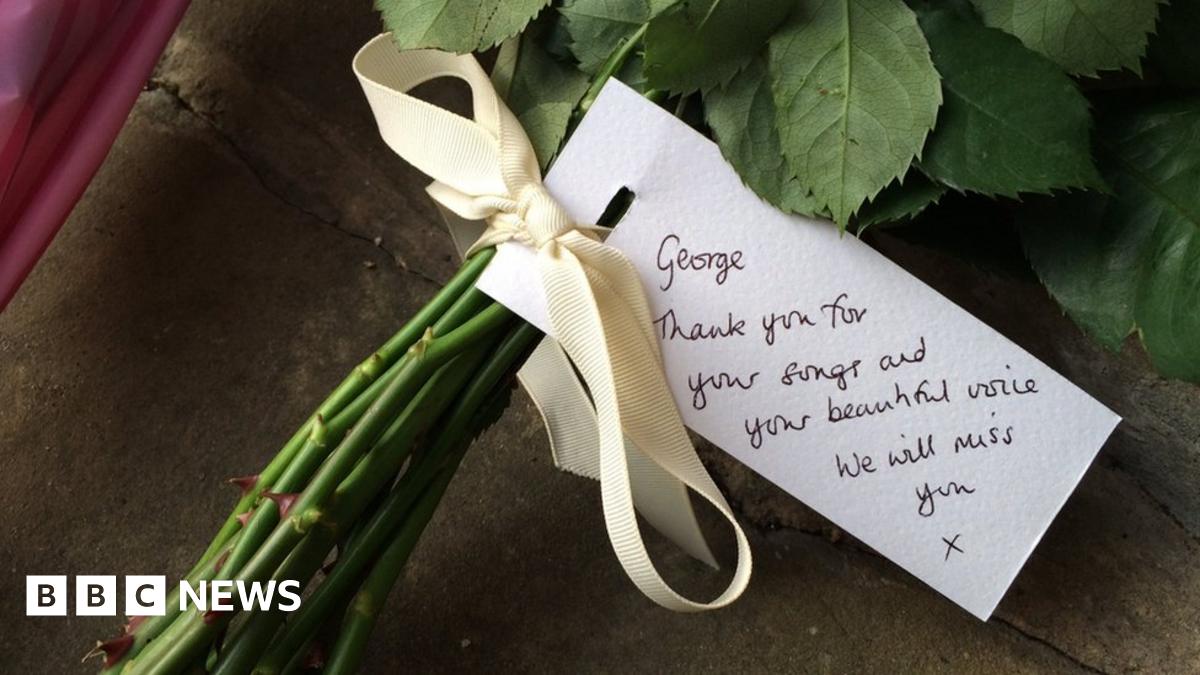 George
Thank you for
your songs and
your beautiful voice
We will miss
you
x
BBC NEWS